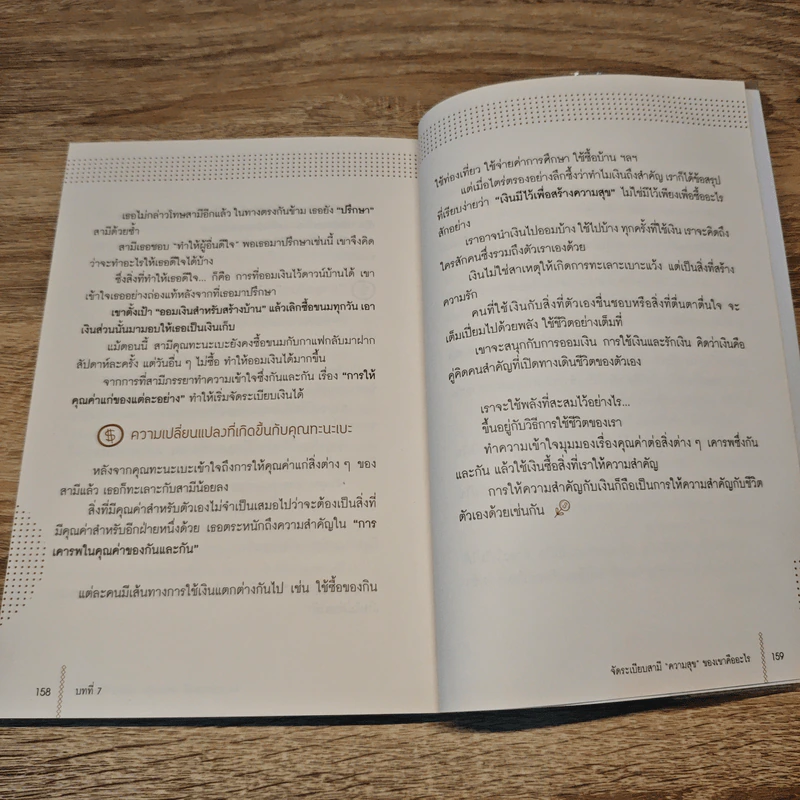 เธอไม่กล่าวโทษสามีอีกแล้ว ในทางตรงกันข้าม เธอยัง "ปรึกษา"
สามีด้วยซ้ำ
สามีเธอชอบ "ทำให้ผู้อื่นดีใจ" พอเธอมาปรึกษาเช่นนี้ เขาจึงคิด
ว่าจะทำอะไรให้เธอดีใจได้บ้าง
ซึ่งสิ่งที่ทำให้เธอดีใจ... ก็คือ การที่ออมเงินไว้ดาวน์บ้านได้ เขา
เข้าใจเธออย่างถ่องแท้หลังจากที่เธอมาปรึกษา
เขาตั้งเป้า "ออมเงินสำหรับสร้างบ้าน" แล้วเลิกซื้อขนมทุกวัน เอา
เงินส่วนนั้นมามอบให้เธอเป็นเงินเก็บ
แม้ตอนนี้ สามีคุณทะนะเบะยังคงซื้อขนมกับกาแฟกลับมาฝาก
สัปดาห์ละครั้ง แต่วันอื่น ๆ ไม่ซื้อ ทำให้ออมเงินได้มากขึ้น
จากการที่สามีภรรยาทำความเข้าใจซึ่งกันและกัน เรื่อง "การให้
คุณค่าแก่ของแต่ละอย่าง" ทำให้เริ่มจัดระเบียบเงินได้
$ ความเปลี่ยนแปลงที่เกิดขึ้นกับคุณทะนะเบะ
หลังจากคุณทะนะเบะเข้าใจถึงการให้คุณค่าแก่สิ่งต่าง ๆ ของ
สามีแล้ว เธอก็ทะเลาะกับสามีน้อยลง
สิ่งที่มีคุณค่าสำหรับตัวเองไม่จำเป็นเสมอไปว่าจะต้องเป็นสิ่งที่
มีคุณค่าสำหรับอีกฝ่ายหนึ่งด้วย เธอตระหนักถึงความสำคัญใน "การ
เคารพในคุณค่าของกันและกัน"
แต่ละคนมีเส้นทางการใช้เงินแตกต่างกันไป เช่น ใช้ซื้อของกิน
158 บทที่ 7
ใช้ท่องเที่ยว ใช้จ่ายค่าการศึกษา ใช้ซื้อบ้าน ฯลฯ
แต่เมื่อไตร่ตรองอย่างลึกซึ้งว่าทำไมเงินถึงสำคัญ เราก็ได้ข้อสรุป
ที่เรียบง่ายว่า "เงินมีไว้เพื่อสร้างความสุข" ไม่ใช่มีไว้เพียงเพื่อซื้ออะไร
สักอย่าง
เราอาจนำเงินไปออมบ้าง ใช้ไปบ้าง ทุกครั้งที่ใช้เงิน เราจะคิดถึง
ใครสักคนซึ่งรวมถึงตัวเราเองด้วย
เงินไม่ใช่สาเหตุให้เกิดการทะเลาะเบาะแว้ง แต่เป็นสิ่งที่สร้าง
ความรัก
คนที่ใช้เงินกับสิ่งที่ตัวเองชื่นชอบหรือสิ่งที่ตื่นตาตื่นใจ จะ
เต็มเปี่ยมไปด้วยพลัง ใช้ชีวิตอย่างเต็มที่
เขาจะสนุกกับการออมเงิน การใช้เงินและรักเงิน คิดว่าเงินคือ
คู่คิดคนสำคัญที่เปิดทางเดินชีวิตของตัวเอง
เราจะใช้พลังที่สะสมไว้อย่างไร...
ขึ้นอยู่กับวิธีการใช้ชีวิตของเรา
ทำความเข้าใจมุมมองเรื่องคุณค่าต่อสิ่งต่าง ๆ เคารพซึ่งกัน
และกัน แล้วใช้เงินซื้อสิ่งที่เราให้ความสำคัญ
การให้ความสำคัญกับเงินก็ถือเป็นการให้ความสำคัญกับชีวิต
ตัวเองด้วยเช่นกัน
จัดระเบียบสามี "ความสุข" ของเขาคืออะไร 159